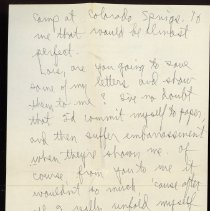 camp at Colorado Springs. To
me that would be almost
perfect.
Lois, are you going to save
some of my letters and show
them to me? I've no doubt
that I'd commit myself to paper,
and then suffer embarrassment
when they're shown me. Of
course from you to me it
wouldn't so much cause after
all I really unfold myself